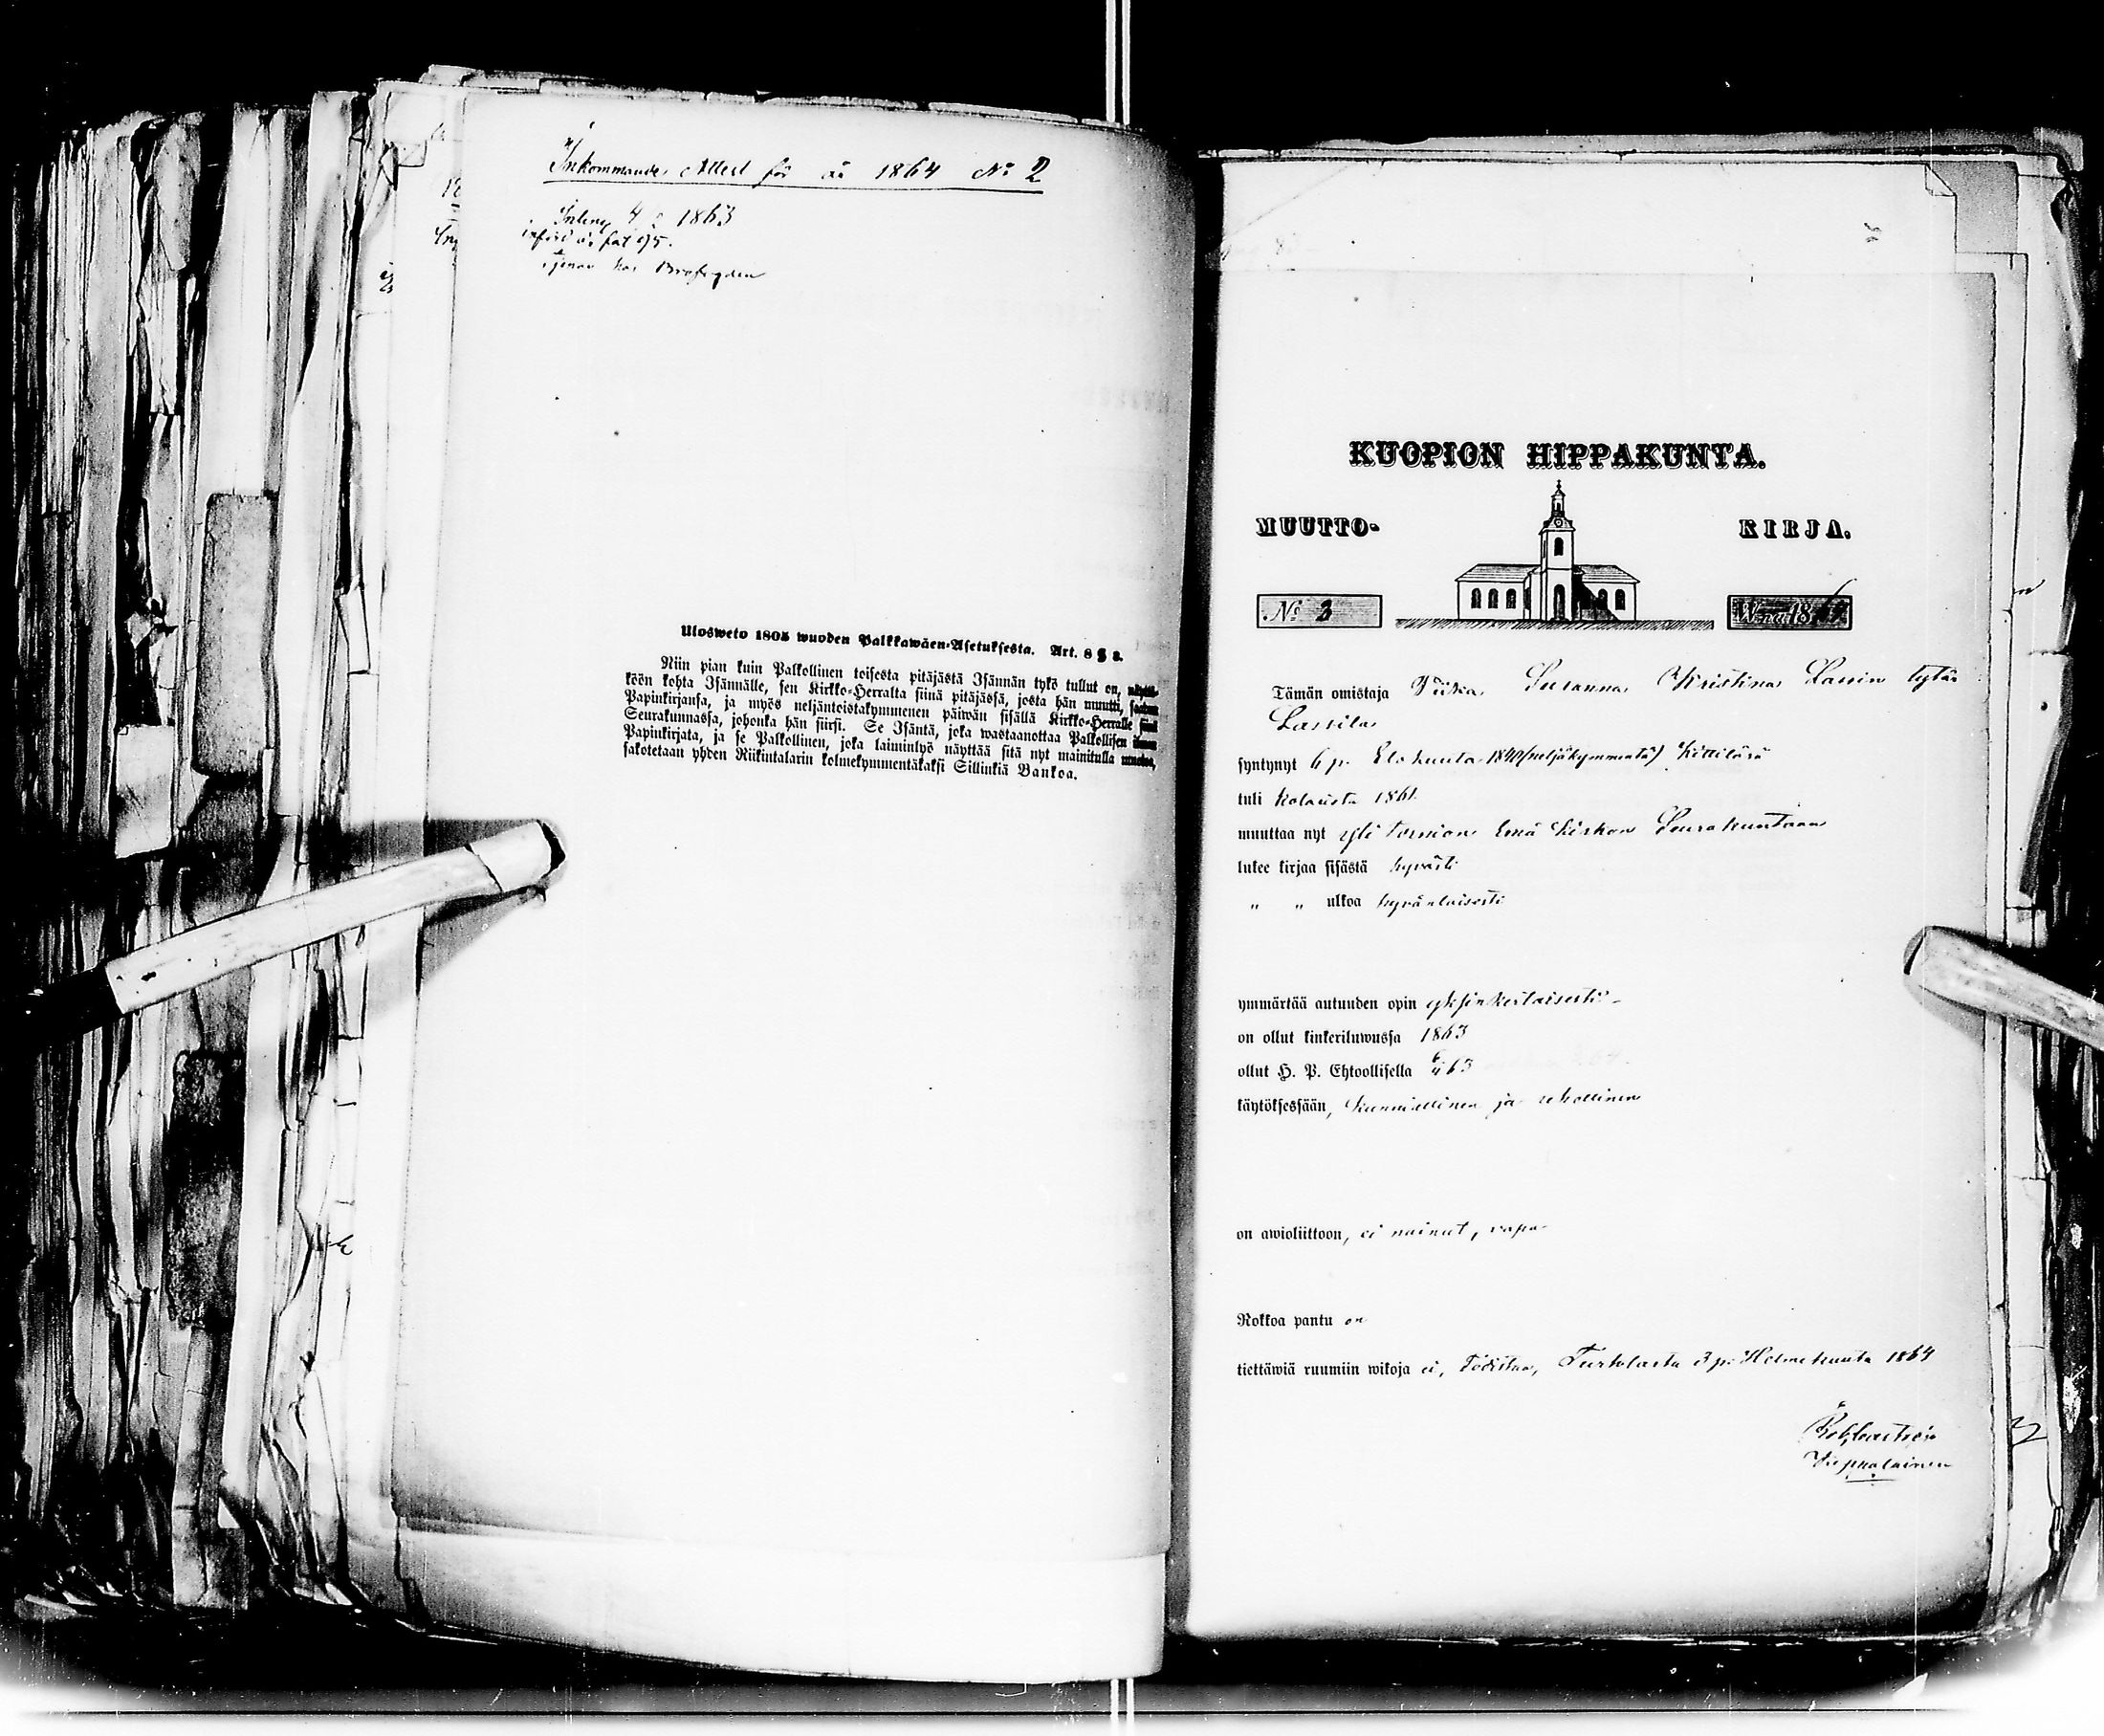 Inkommande Attest för år 1864 No 2
1863
införd å
Ulosweto 1805 wuoden Palkkawäen-Asetuksesta. Art. 8 § 3.
Niin pian kuin Palkollinen toisesta pitäjästä Isännän tykö tullut on,
köön kohta Isännälle, sen Kirkko-Herralta siinä pitäjässä, josta hän muutti,
Papinkirjansa, ja myös neljäntoistakymmenen päiwän sisällä Kirkko-Herralle
Seurakunnassa, johonka hän siirsi. Se Isäntä, joka wastaanottaa Palkollisen ilman
Papinkirjata, ja se Palkollinen, joka laiminlyö näyttää sitä nyt mainitulla
sakotetaan yhden Riikintalarin kolmekymmentäkaksi Sillinkiä Bankoa.
KUOPION HIPPAKUNTA.
MUUTTO- KIRJA.
No 3 W:na 18
Tämän omistaja Piika Susanna Kristina Lassin tytär
Lassila
syntynyt 6 p. Elokuuta 1840 (neljäkymmentä) Kittilässä
tuli Kolarista 1861
muuttaa nyt yli Tornion Emä Kirkon Seurakuntaan
lukee kirjaa sisästä hywästi
" " ulkoa hywänlaisesti
ymmärtää autuuden opin yksinkertaisesti
on ollut kinkeriluwussa 1863
ollut H. P. Ehtoollisella 63
käytöksessään, kunniallinen ja rehellinen
on awioliittoon, ei nainut, vapa
Rokkoa pantu on
tiettäwiä ruumiin wikoja ei, Todistaa, Turtolasta 3 p. Helmekuuta 1864